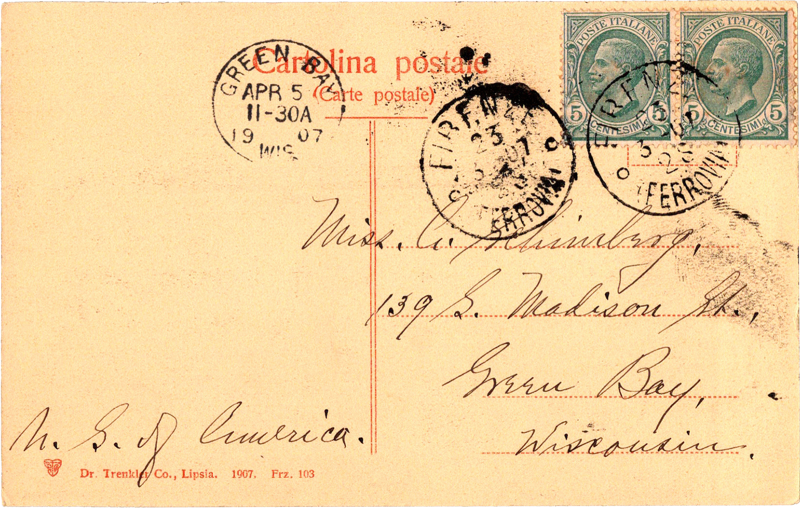 Cartolina postale
(Carte postale)
GREEN BAY
APR 5
11-30A
19 07
WIS.
POSTE ITALIANE
5 CENTESIMI 5
POSTE ITALIANE
5 CENTESIMI 5
FIRENZE
23
07
(FERROVIA)
FIRENZE
23
(FERROVIA)
Miss. A.
139 S. Madison St.,
Green Bay,
Wisconsin.
U. S. of America.
Dr. Trenkler Co., Lipsia. 1907. Frz. 103